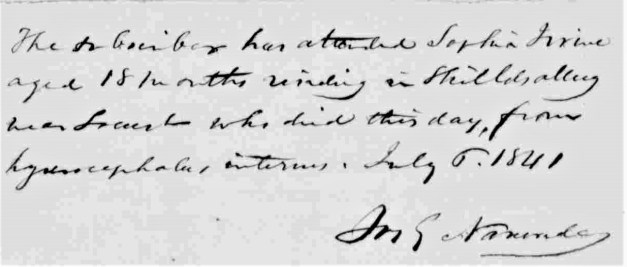 The subscriber has attended Sophia Irvine
aged 18 months residing in Shields alley
near Locust who died this day, from
hydrocephalus internus. July 6. 1841
Jos G Nancrede